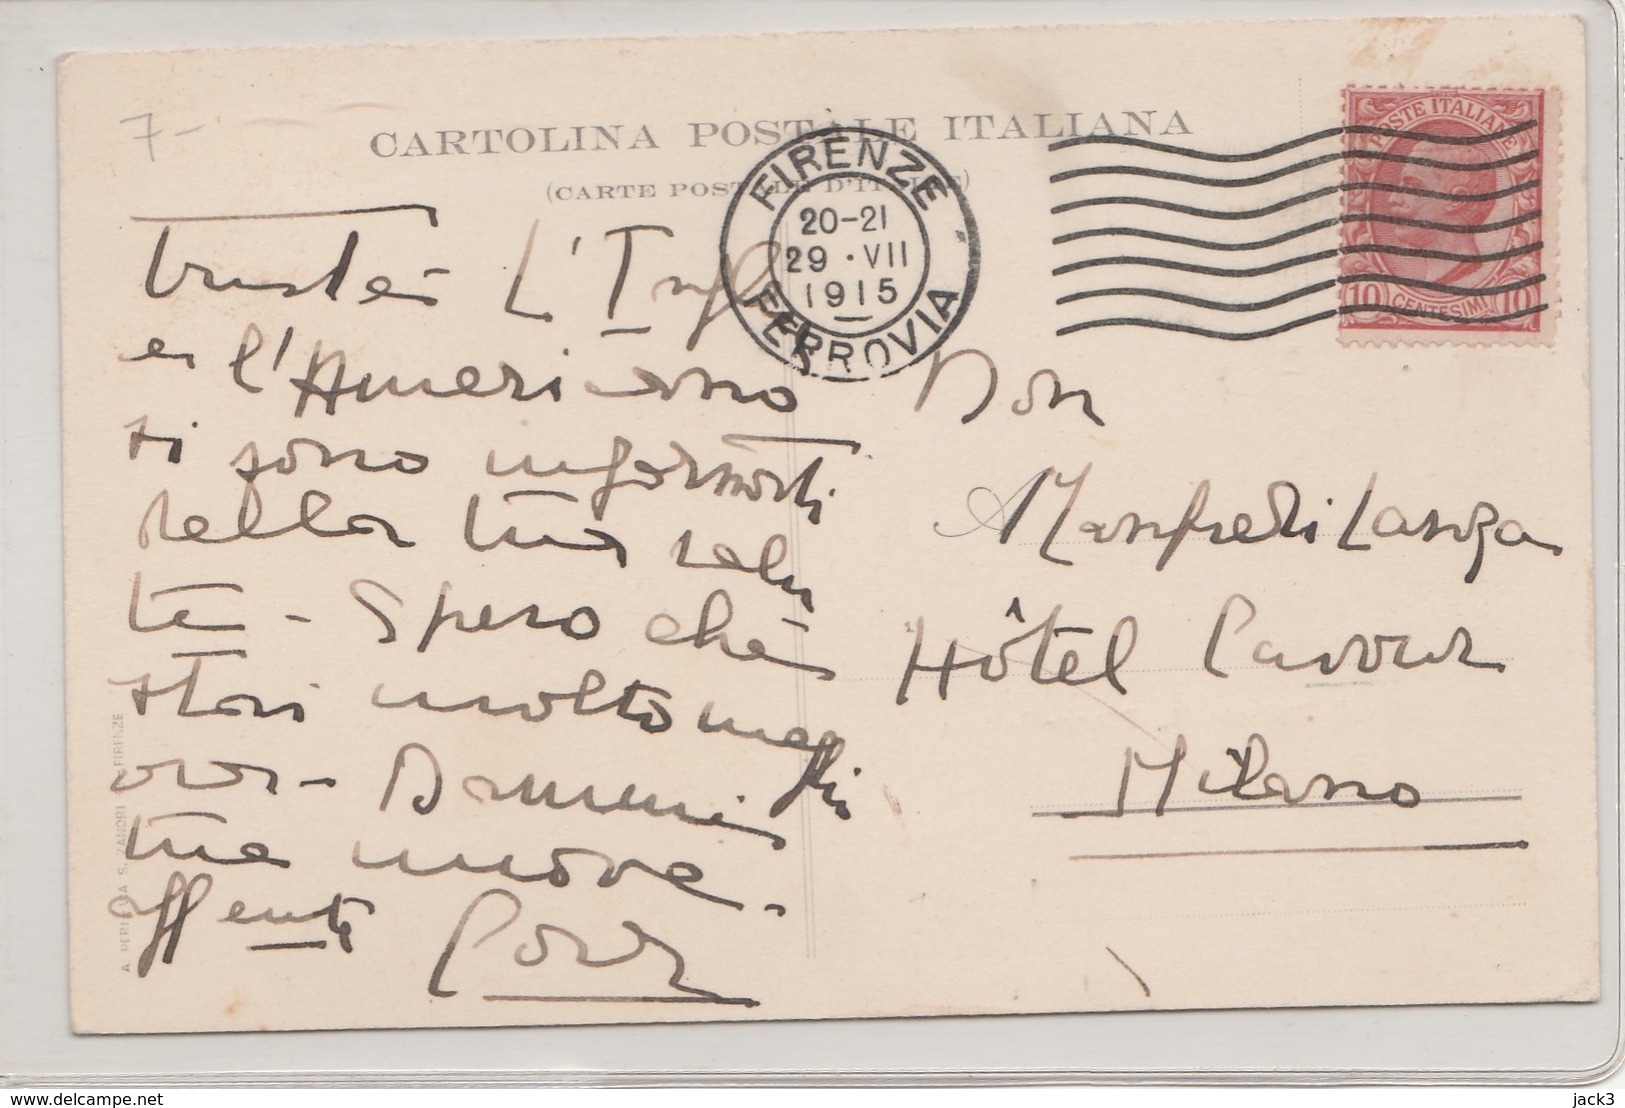 7-
CARTOLINA POSTALE ITALIANA
(CARTE POSTALE D'ITALIE)
FIRENZE
20-21
29 · VII
1915
FERROVIA
POSTE ITALIANE
10 CENTESIMI 10
L'Ingl
e l'Americano
si sono informati
della tua salu
te - Spero che
stai molto meglio
ora - Dammi
tue nuove.
Don
Manfredi Lanza
Hôtel Cavour
Milano
FIRENZE
www.delcampe.net
jack3